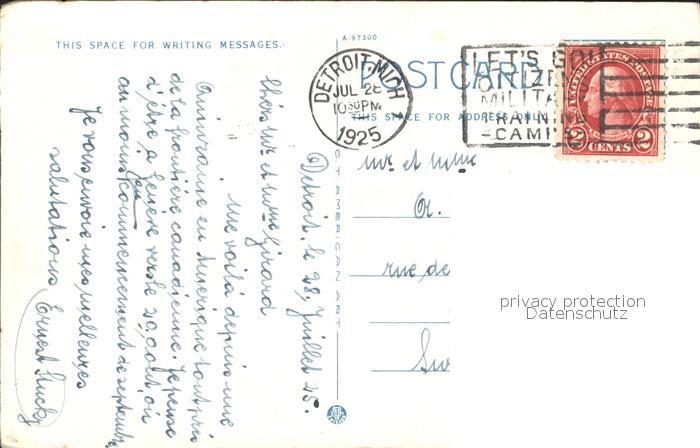 THIS SPACE FOR WRITING MESSAGES.
A-97300
POST CARD
THIS SPACE FOR ADDRESS ONLY
DETROIT, MICH
JUL 28
1030 PM
1925
LET'S GO!
CITIZENS
MILITA
TRAINING
CAMPS
UNITED STATES POSTAGE
2 CENTS 2
Détroit, le 28, Juillet 25.
Chers Mr. et Mme Girard
Me voilà depuis une
Quinzaine en Amerique tout près
de la frontière canadienne. Je pense
d'être à Genève vers le 20, août, ou
au moins au commencement de septembre
Je vous envoie mes meilleures
salutations Ernest Stucky
Mr et Mme
A.
rue de
Sui
AMERICAN ART
privacy protection
Datenschutz